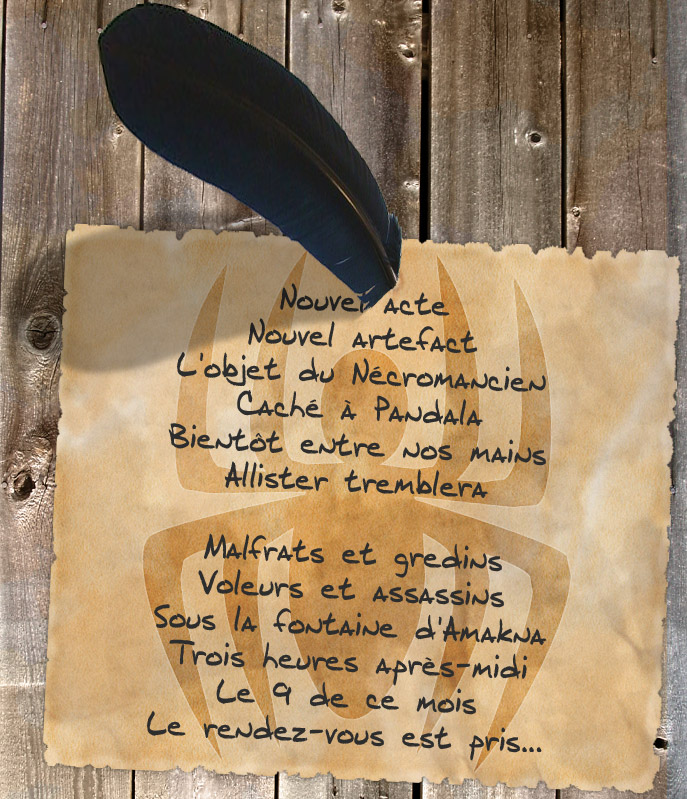 Nouvel acte
Nouvel artefact
L'objet du Nécromancien
Caché à Pandala
Bientôt entre nos mains
Allister tremblera
Malfrats et gredins
Voleurs et assassins
Sous la fontaine d'Amakna
Trois heures après-midi
Le 9 de ce mois
Le rendez-vous est pris...